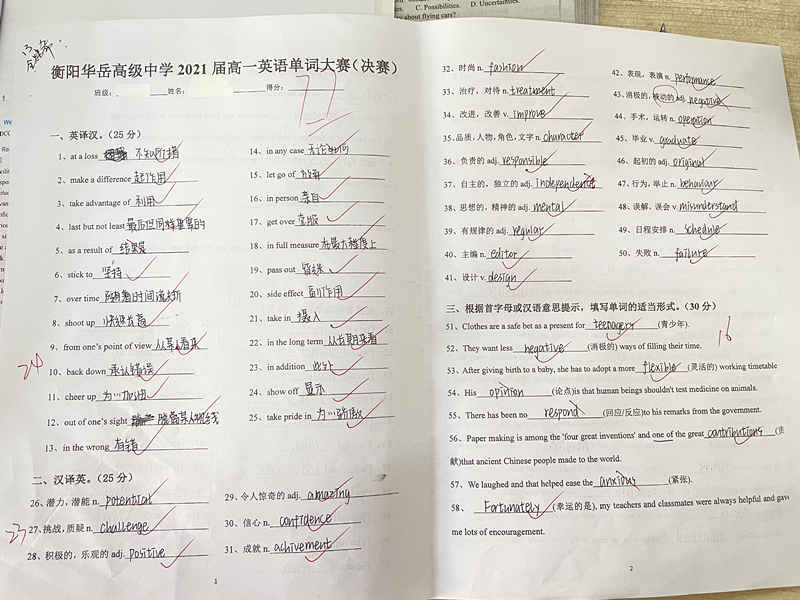 C. Possibilities. D. Uncertainties.
about flying cars?
衡阳华岳高级中学 2021 届高一英语单词大赛(决赛)
班级: 姓名: 得分: 77
一、英译汉。(25 分)
1、at a loss 不知所措
2、make a difference 起作用
3、take advantage of 利用
4、last but not least 最后但同样重要的
5、as a result of 结果是
6、stick to 坚持
7、over time 随着时间流逝
8、shoot up 快速长高
9、from one's point of view 从某人看来
24
10、back down 承认错误
11、cheer up 为…加油
12、out of one's sight 脱离某人视线
13、in the wrong 有错
二、汉译英。(25 分)
26、潜力,潜能 n. potential
27、挑战,质疑 n. challenge
23
28、积极的,乐观的 adj. positive
14、in any case 无论如何
15、let go of 放弃
16、in person 亲自
17、get over 克服
18、in full measure 在最大程度上
19、pass out
20、side effect 副作用
21、take in 摄入
22、in the long term 从长期来看
23、in addition 此外
24、show off 显示
25、take pride in 为…骄傲
29、令人惊奇的 adj. amazing
30、信心 n. confidence
31、成就 n. achivement
1
32、时尚 n. fashion
33、治疗,对待 n. treatment
34、改进,改善 v. improve
35、品质,人物,角色,文字 n. character
36、负责的 adj. responsible
37、自主的,独立的 adj. independent
38、思想的,精神的 adj. mental
39、有规律的 adj. regular
40、主编 n. editor
41、设计 v. design
42、表现,表演 n. performance
43、消极的,被动的 adj. negative
44、手术,运转 n. operation
45、毕业 v. graduate
46、起初的 adj. original
47、行为,举止 n. behaviour
48、误解,误会 v. misunderstand
49、日程安排 n. schedule
50、失败 n. failure
三、根据首字母或汉语意思提示,填写单词的适当形式。(30 分)
51、Clothes are a safe bet as a present for teenagers (青少年).
16
52、They want less negative (消极的) ways of filling their time.
53、After giving birth to a baby, she has to adopt a more flexible (灵活的) working timetable
54、His opinion (论点)is that human beings shouldn't test medicine on animals.
55、There has been no respond (回应/反应)to his remarks from the government.
56、Paper making is among the 'four great inventions' and one of the great contributions (贡
献)that ancient Chinese people made to the world.
57、We laughed and that helped ease the anxious (紧张).
58、Fortunately (幸运的是), my teachers and classmates were always helpful and gave
me lots of encouragement.
2